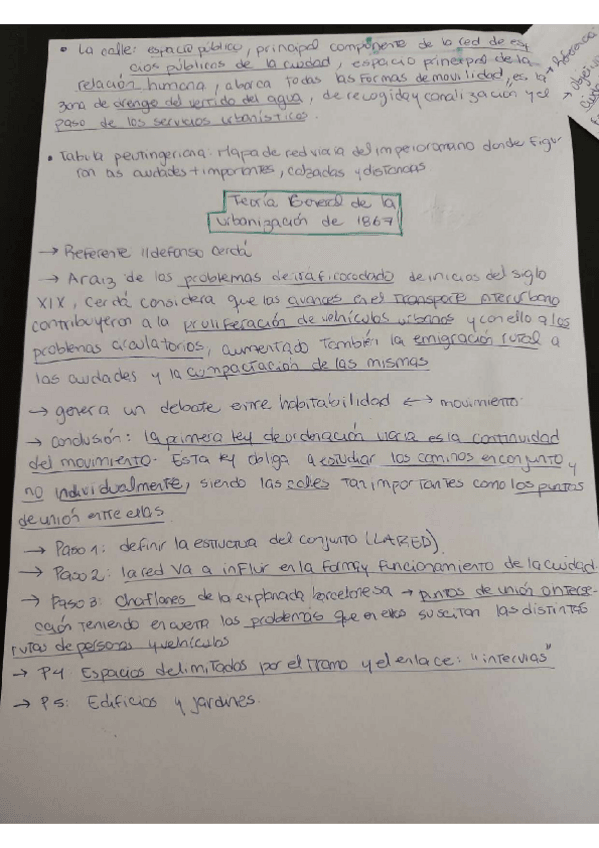 • La calle: espacio público, principal componente de la red de es-
cios públicos de la ciudad, espacio principal de la
relación humana, abarca todas las formas de movilidad, es la
zona de drenge del vertido del agua, de recogida y canalización y el
paso de los servicios urbanísticos.
• Tabula peutingeriana: Mapa de red viaria del imperio romano donde figu-
ran las ciudades + importantes, calzadas y distancias
Teoría General de la
urbanización de 1867
→ Referente Ildefonso Cerdá
→ A raiz de los problemas de tráfico rodado de inicios del siglo
XIX, Cerdá considera que los avances en el transporte interurbano
contribuyeron a la proliferación de vehículos urbanos y con ello a los
problemas circulatorios, aumentado también la emigración rural a
las ciudades y la compactación de las mismas
→ genera un debate entre habitabilidad ↔ movimiento.
→ conclusión: la primera ley de ordenación viaria es la continuidad
del movimiento. Esta ley obliga a estudiar los caminos en conjunto y
no individualmente, siendo las calles tan importantes como los puntos
de unión entre ellas.
→ Paso 1: definir la estructura del conjunto (LA RED).
→ Paso 2: la red va a influir en la forma y funcionamiento de la ciudad.
→ Paso 3: chaflanes de la explanada barcelonesa → puntos de unión o interse-
cción teniendo en cuenta los problemas que en ellos suscitan las distintas
rutas de personas y vehículos
→ P4 Espacios delimitados por el tramo y el enlace: "intervías"
→ P5: Edificios y jardines.